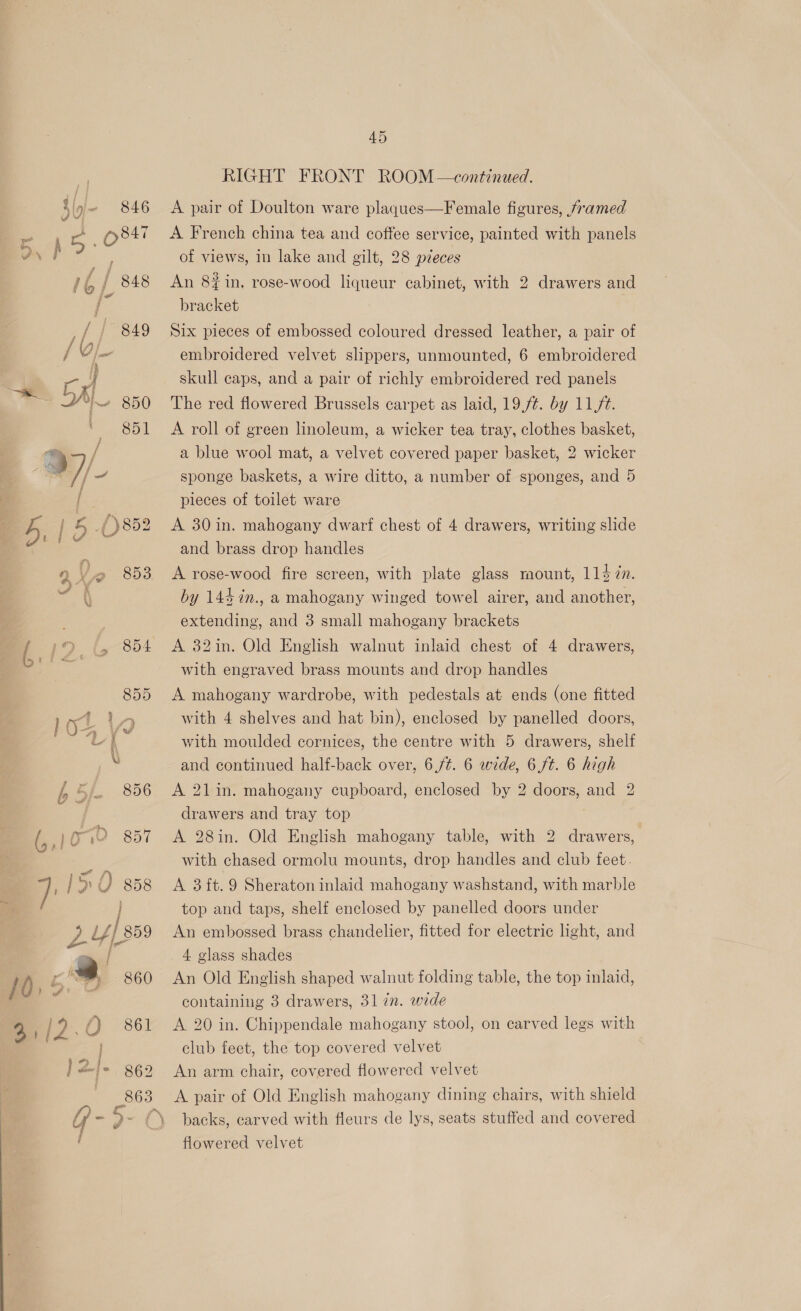 45
RIGHT FRONT ROOM—continued.
846 A pair of Doulton ware plaques—Female figures, framed
5 . 15 . 0 847 A French china tea and coffee service, painted with panels
of views, in lake and gilt, 28 pieces
16/ 848 An 8¾in. rose-wood liqueur cabinet, with 2 drawers and
bracket
849 Six pieces of embossed coloured dressed leather, a pair of
embroidered velvet slippers, unmounted, 6 embroidered
skull caps, and a pair of richly embroidered red panels
850 The red flowered Brussels carpet as laid, 19 ft. by 11 ft.
851 A roll of green linoleum, a wicker tea tray, clothes basket,
a blue wool mat, a velvet covered paper basket, 2 wicker
sponge baskets, a wire ditto, a number of sponges, and 5
pieces of toilet ware
5 . 15 . 0 852 A 30 in. mahogany dwarf chest of 4 drawers, writing slide
and brass drop handles
853 A rose-wood fire screen, with plate glass mount, 11½ in.
by 14½ in., a mahogany winged towel airer, and another,
extending, and 3 small mahogany brackets
854 A 32in. Old English walnut inlaid chest of 4 drawers,
with engraved brass mounts and drop handles
855 A mahogany wardrobe, with pedestals at ends (one fitted
with 4 shelves and hat bin), enclosed by panelled doors,
with moulded cornices, the centre with 5 drawers, shelf
and continued half-back over, 6 ft. 6 wide, 6 ft. 6 high
856 A 21in. mahogany cupboard, enclosed by 2 doors, and 2
drawers and tray top
6 . 10 . 0 857 A 28in. Old English mahogany table, with 2 drawers,
with chased ormolu mounts, drop handles and club feet.
7 . 15 0 858 A 3ft. 9 Sheraton inlaid mahogany washstand, with marble
top and taps, shelf enclosed by panelled doors under
859 An embossed brass chandelier, fitted for electric light, and
4 glass shades
860 An Old English shaped walnut folding table, the top inlaid,
containing 3 drawers, 31 in. wide
3 . 12 . 0 861 A 20 in. Chippendale mahogany stool, on carved legs with
club feet, the top covered velvet
12/- 862 An arm chair, covered flowered velvet
863 A pair of Old English mahogany dining chairs, with shield
9 - 5 - 0 backs, carved with fleurs de lys, seats stuffed and covered
flowered velvet